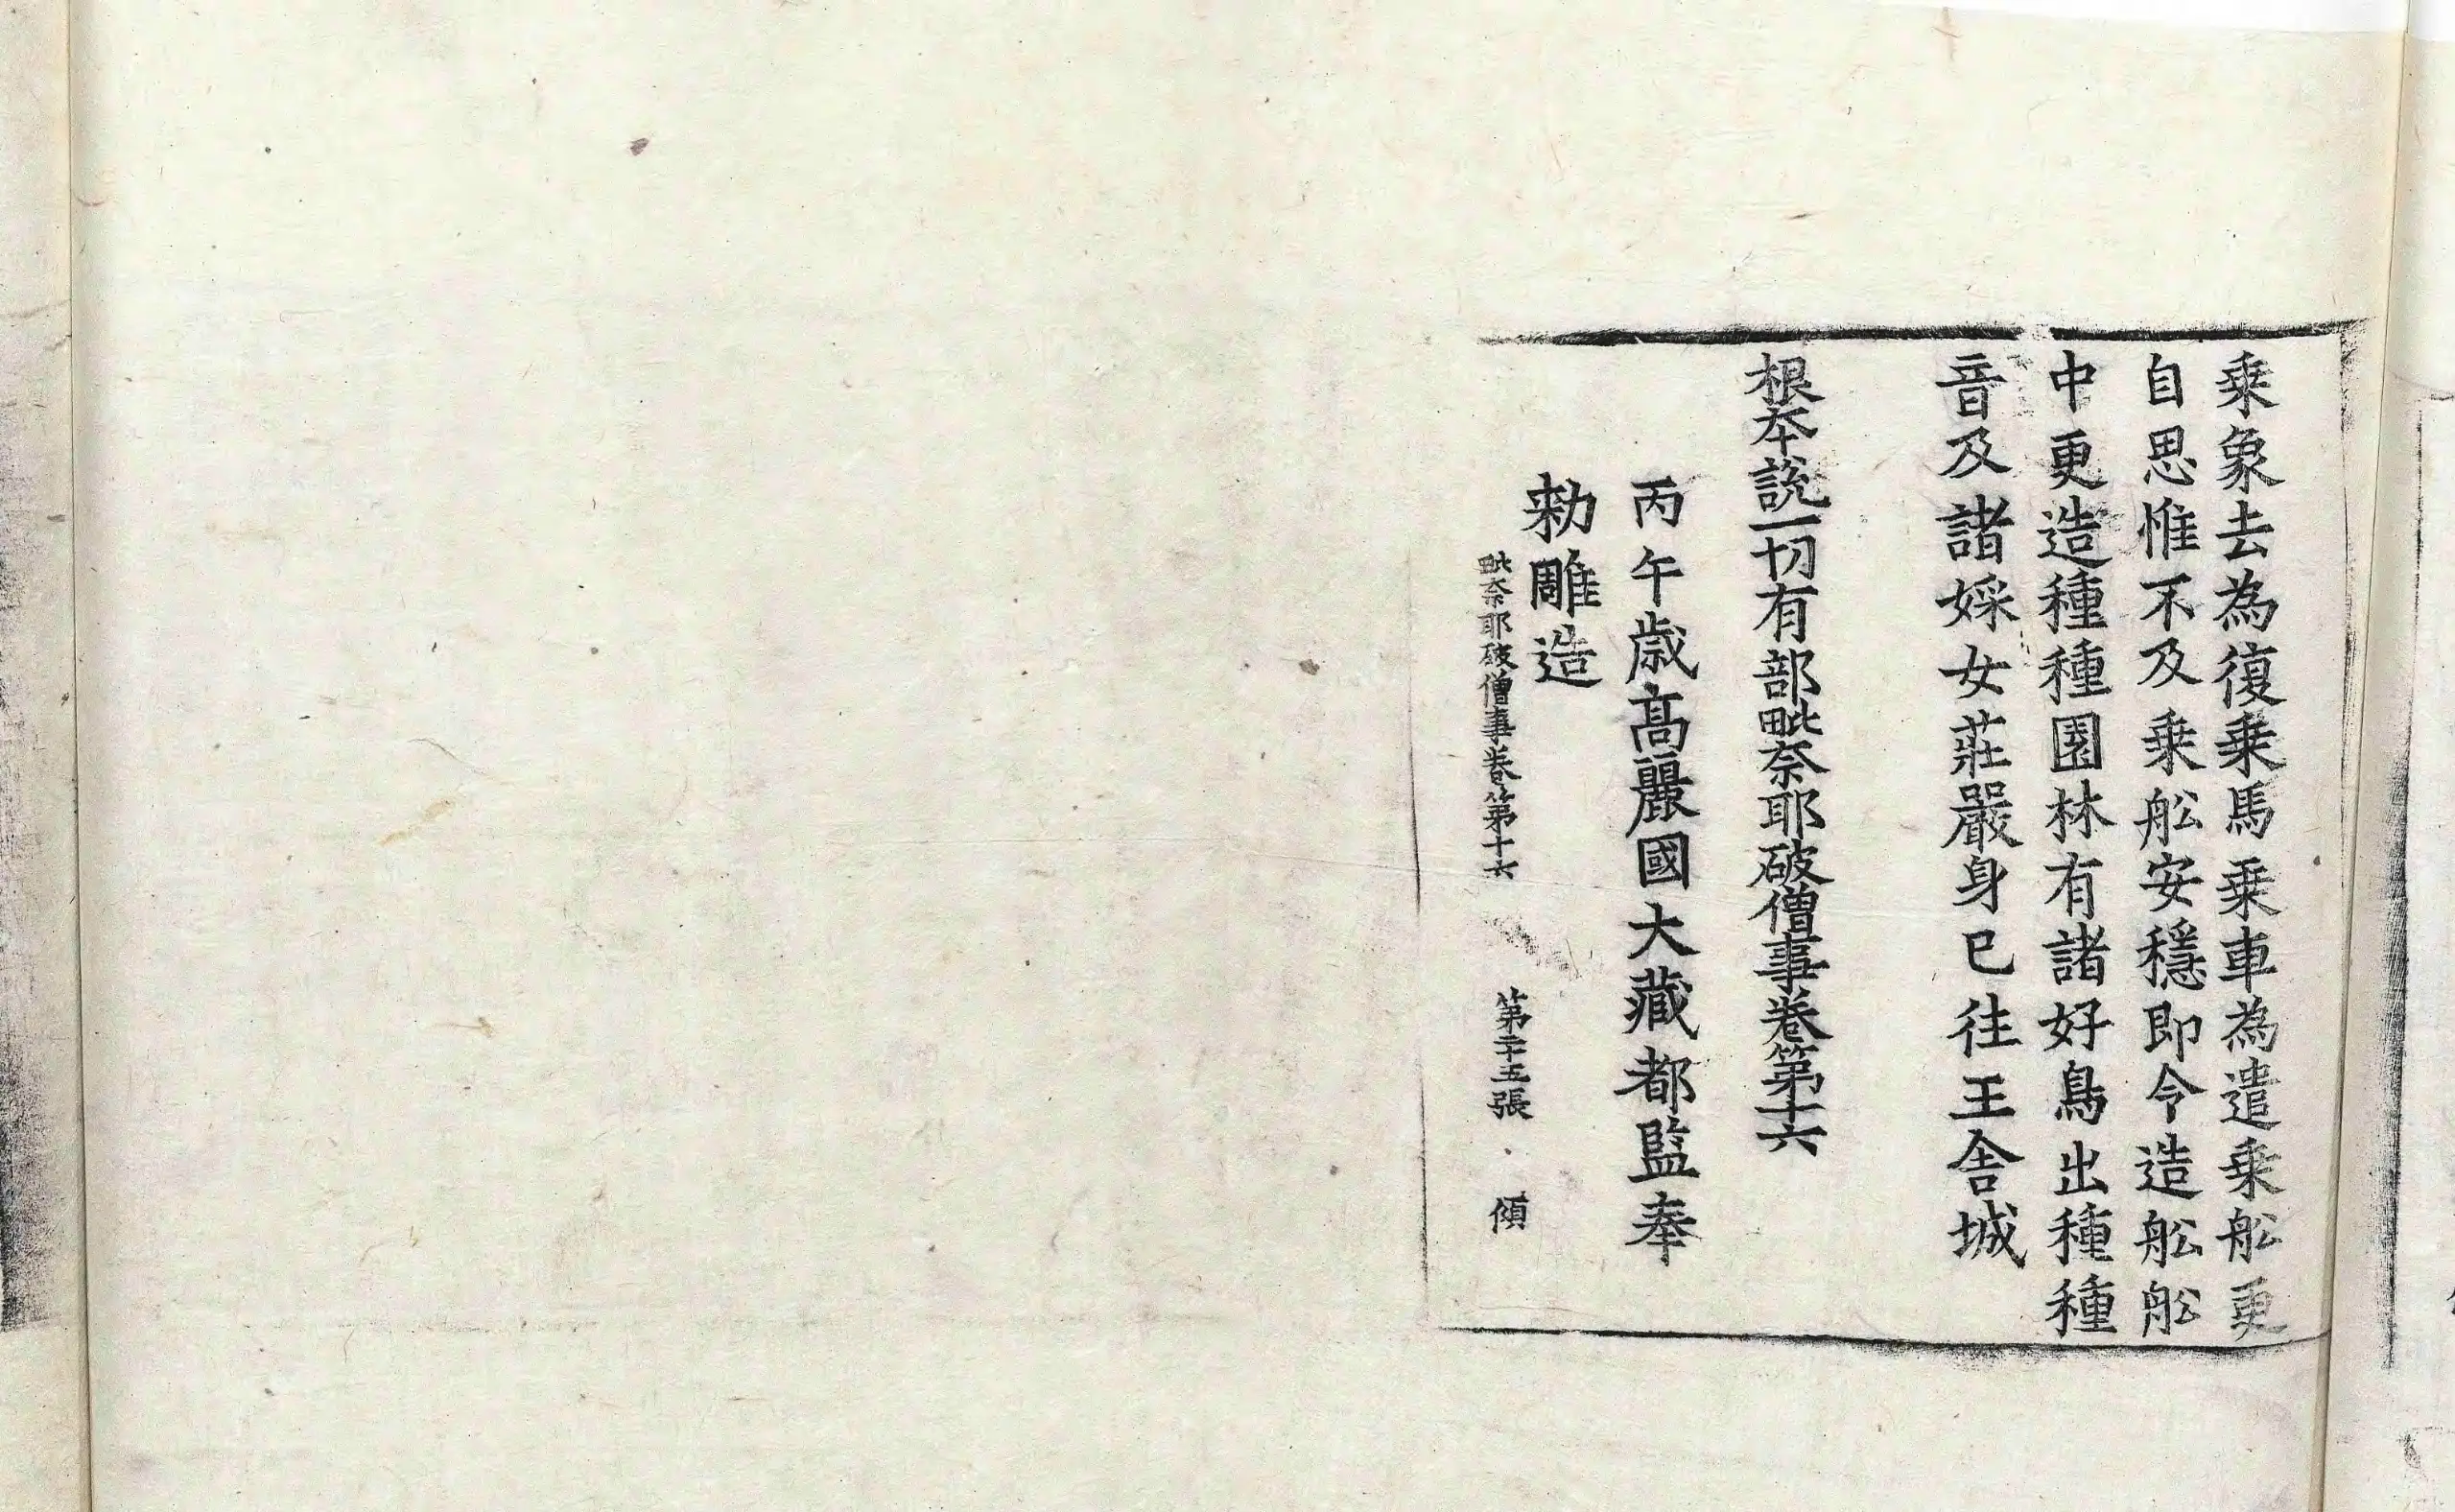 乗象去為復乗馬乗車為遣乗舩更
自思惟不及乗舩安穩即令造舩舩
中更造種種園林有諸好鳥出種種
音及諸婇女莊嚴身已往王舍城
根本說一切有部毗奈耶破僧事卷第十六
丙午歳髙麗國大藏都監奉
勑雕造
毗奈耶破僧事卷第十六 第二十五張 傾